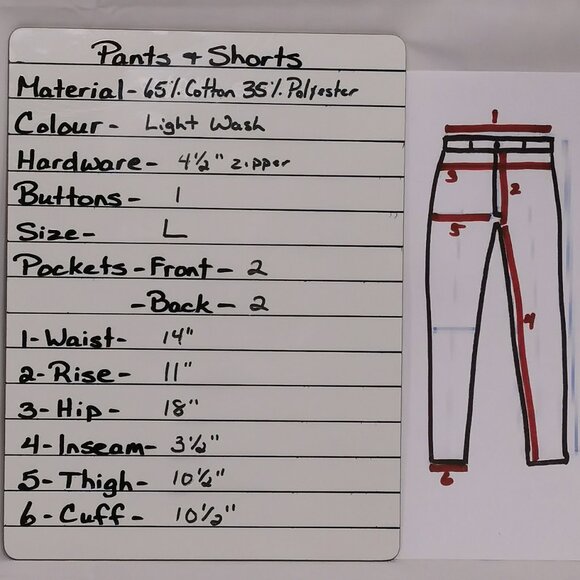 Pants & Shorts
Material - 65% Cotton 35% Polyester
Colour - Light Wash
Hardware - 4 1/2" zipper
Buttons - 1
Size - L
Pockets - Front - 2
- Back - 2
1 - Waist - 14"
2 - Rise - 11"
3 - Hip - 18"
4 - Inseam - 3 1/2"
5 - Thigh - 10 1/2"
6 - Cuff - 10 1/2"
1
3
2
5
4
6